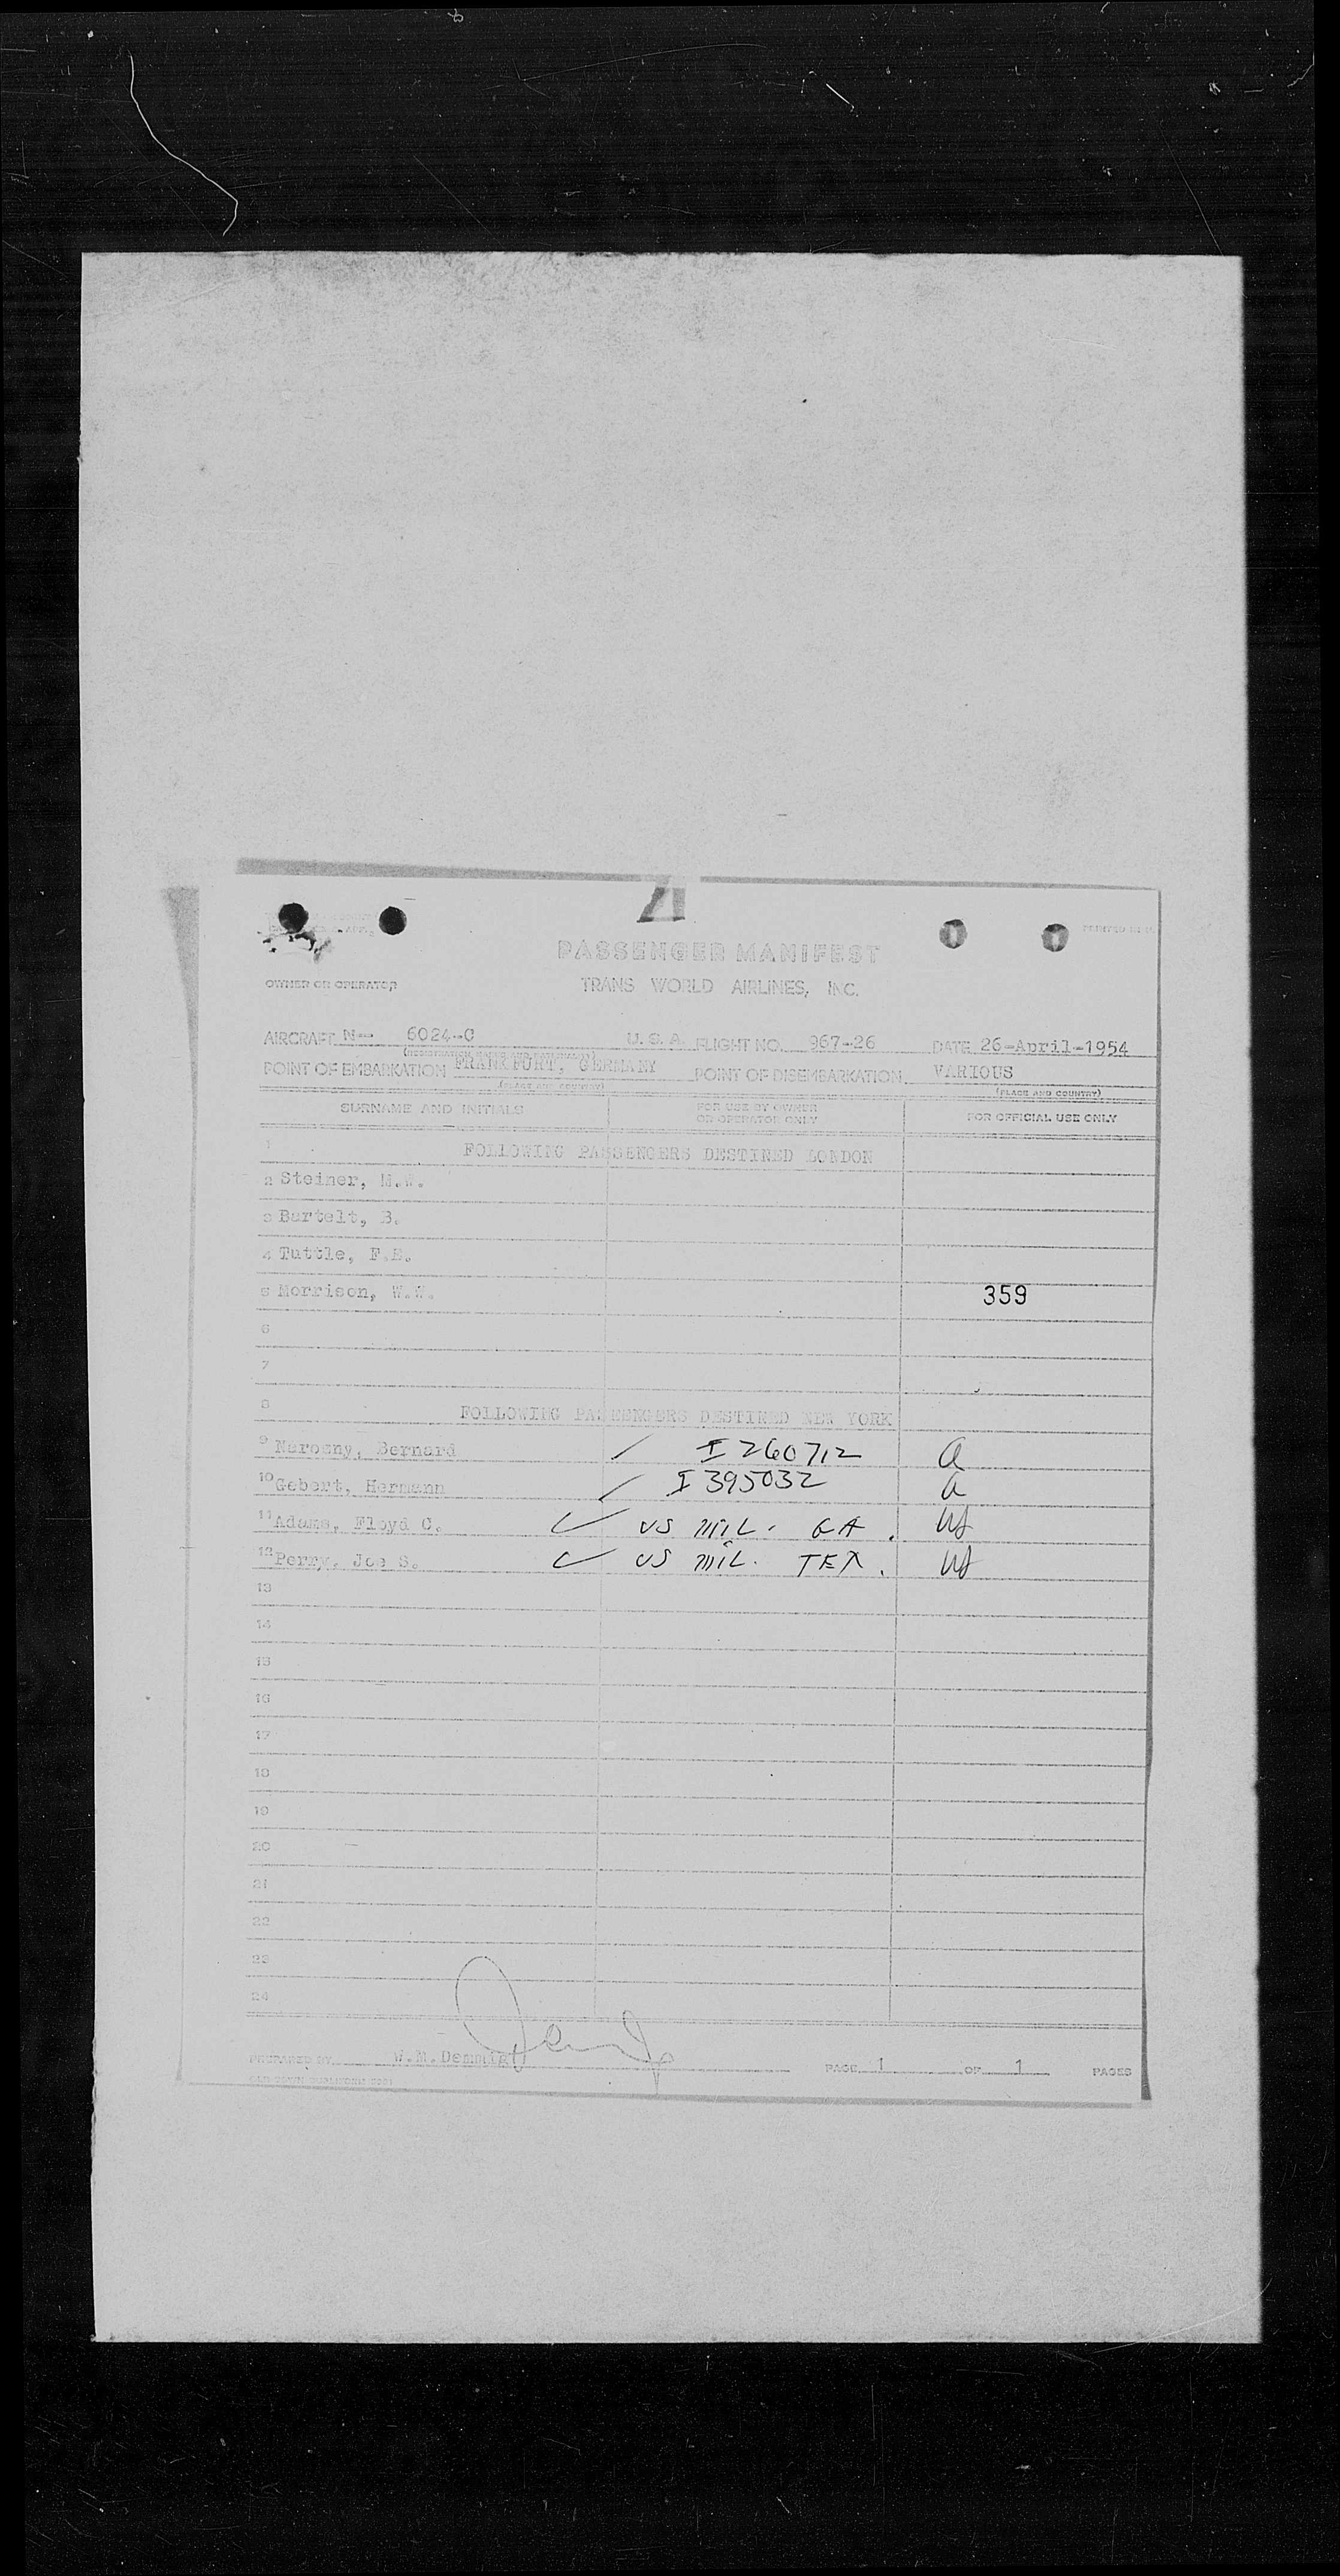 21
PASSENGER MANIFEST
OWNER OR OPERATOR TRANS WORLD AIRLINES, INC.
AIRCRAFT N-- 6024-C U. S. A. FLIGHT NO. 967-26 DATE 26-April-1954
(REGISTRATION MARKS AND NATIONALITY)
POINT OF EMBARKATION FRANKFURT, GERMANY POINT OF DISEMBARKATION VARIOUS
(PLACE AND COUNTRY) (PLACE AND COUNTRY)
SURNAME AND INITIALS FOR USE BY OWNER OR OPERATOR ONLY FOR OFFICIAL USE ONLY
1 FOLLOWING PASSENGERS DESTINED LONDON
2 Steiner, M.W.
3 Bartelt, B.
4 Tuttle, F.E.
5 Morrison, W.W. 359
6
7
8 FOLLOWING PASSENGERS DESTINED NEW YORK
9 Narosny, Bernard I 260712 a
10 Gebert, Hermann I 395032 a
11 Adams, Floyd C. US MIL. GA.
12 Perry, Joe S. US MIL. TEX.
13
14
15
16
17
18
19
20
21
22
23
24
PREPARED BY W.M. Demmig PAGE 1 OF 1 PAGES